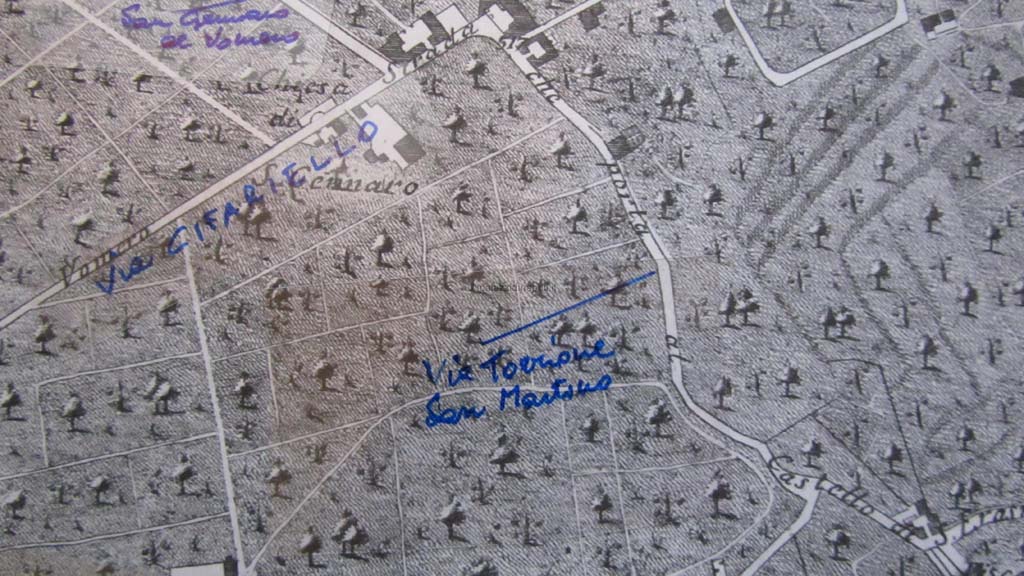 San Gennaro
al Vomero
Strada
che
Chiesa
di
Gennaro
porta
Vomero
Via CIFARIELLO
al
Via Torrione
San Martino
Castello di S.